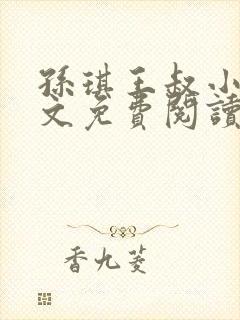 孫琪王叔小
文免費閱讀
香九菱